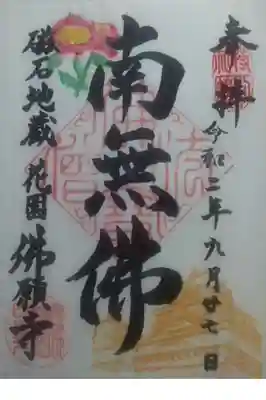 奉拝
令和二年九月廿七日
南無佛
磁石地蔵 花園 佛願寺